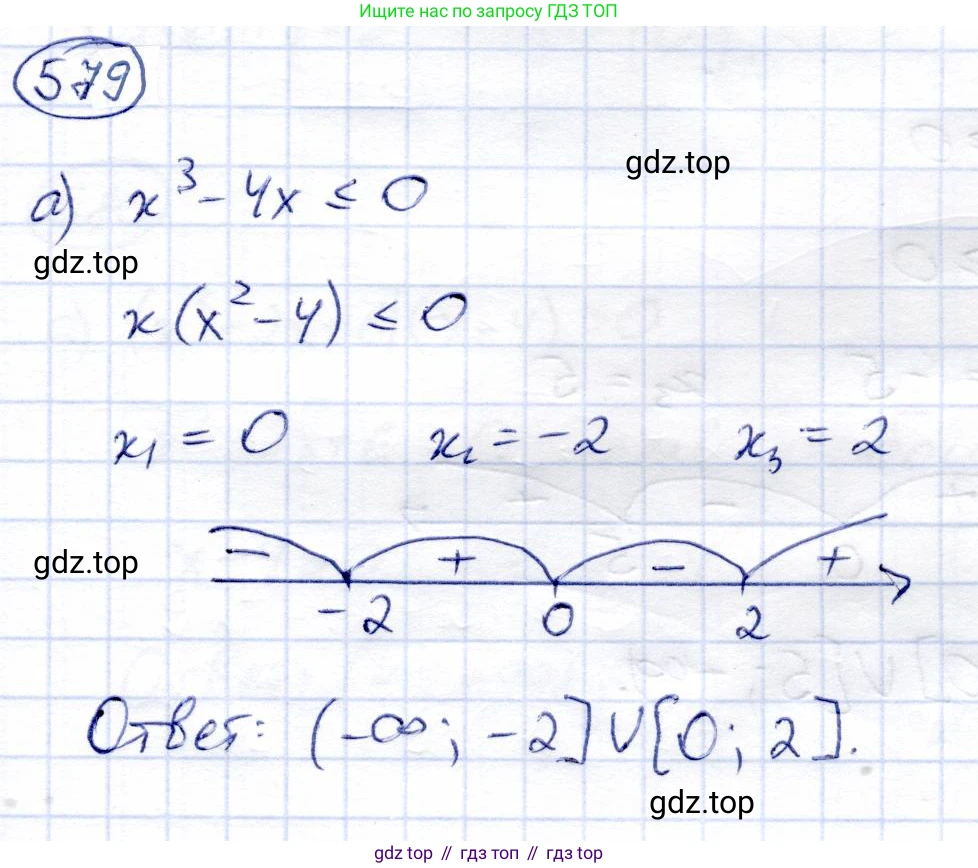 Ищите нас по запросу ГДЗ ТОП
579
gdz.top
а) x³ - 4x ≤ 0
gdz.top
x(x² - 4) ≤ 0
x₁ = 0 x₂ = -2 x₃ = 2
gdz.top
- + - +
-2 0 2
Ответ: (-∞; -2] ∪ [0; 2].
gdz.top
gdz.top // гдз топ // гдз top